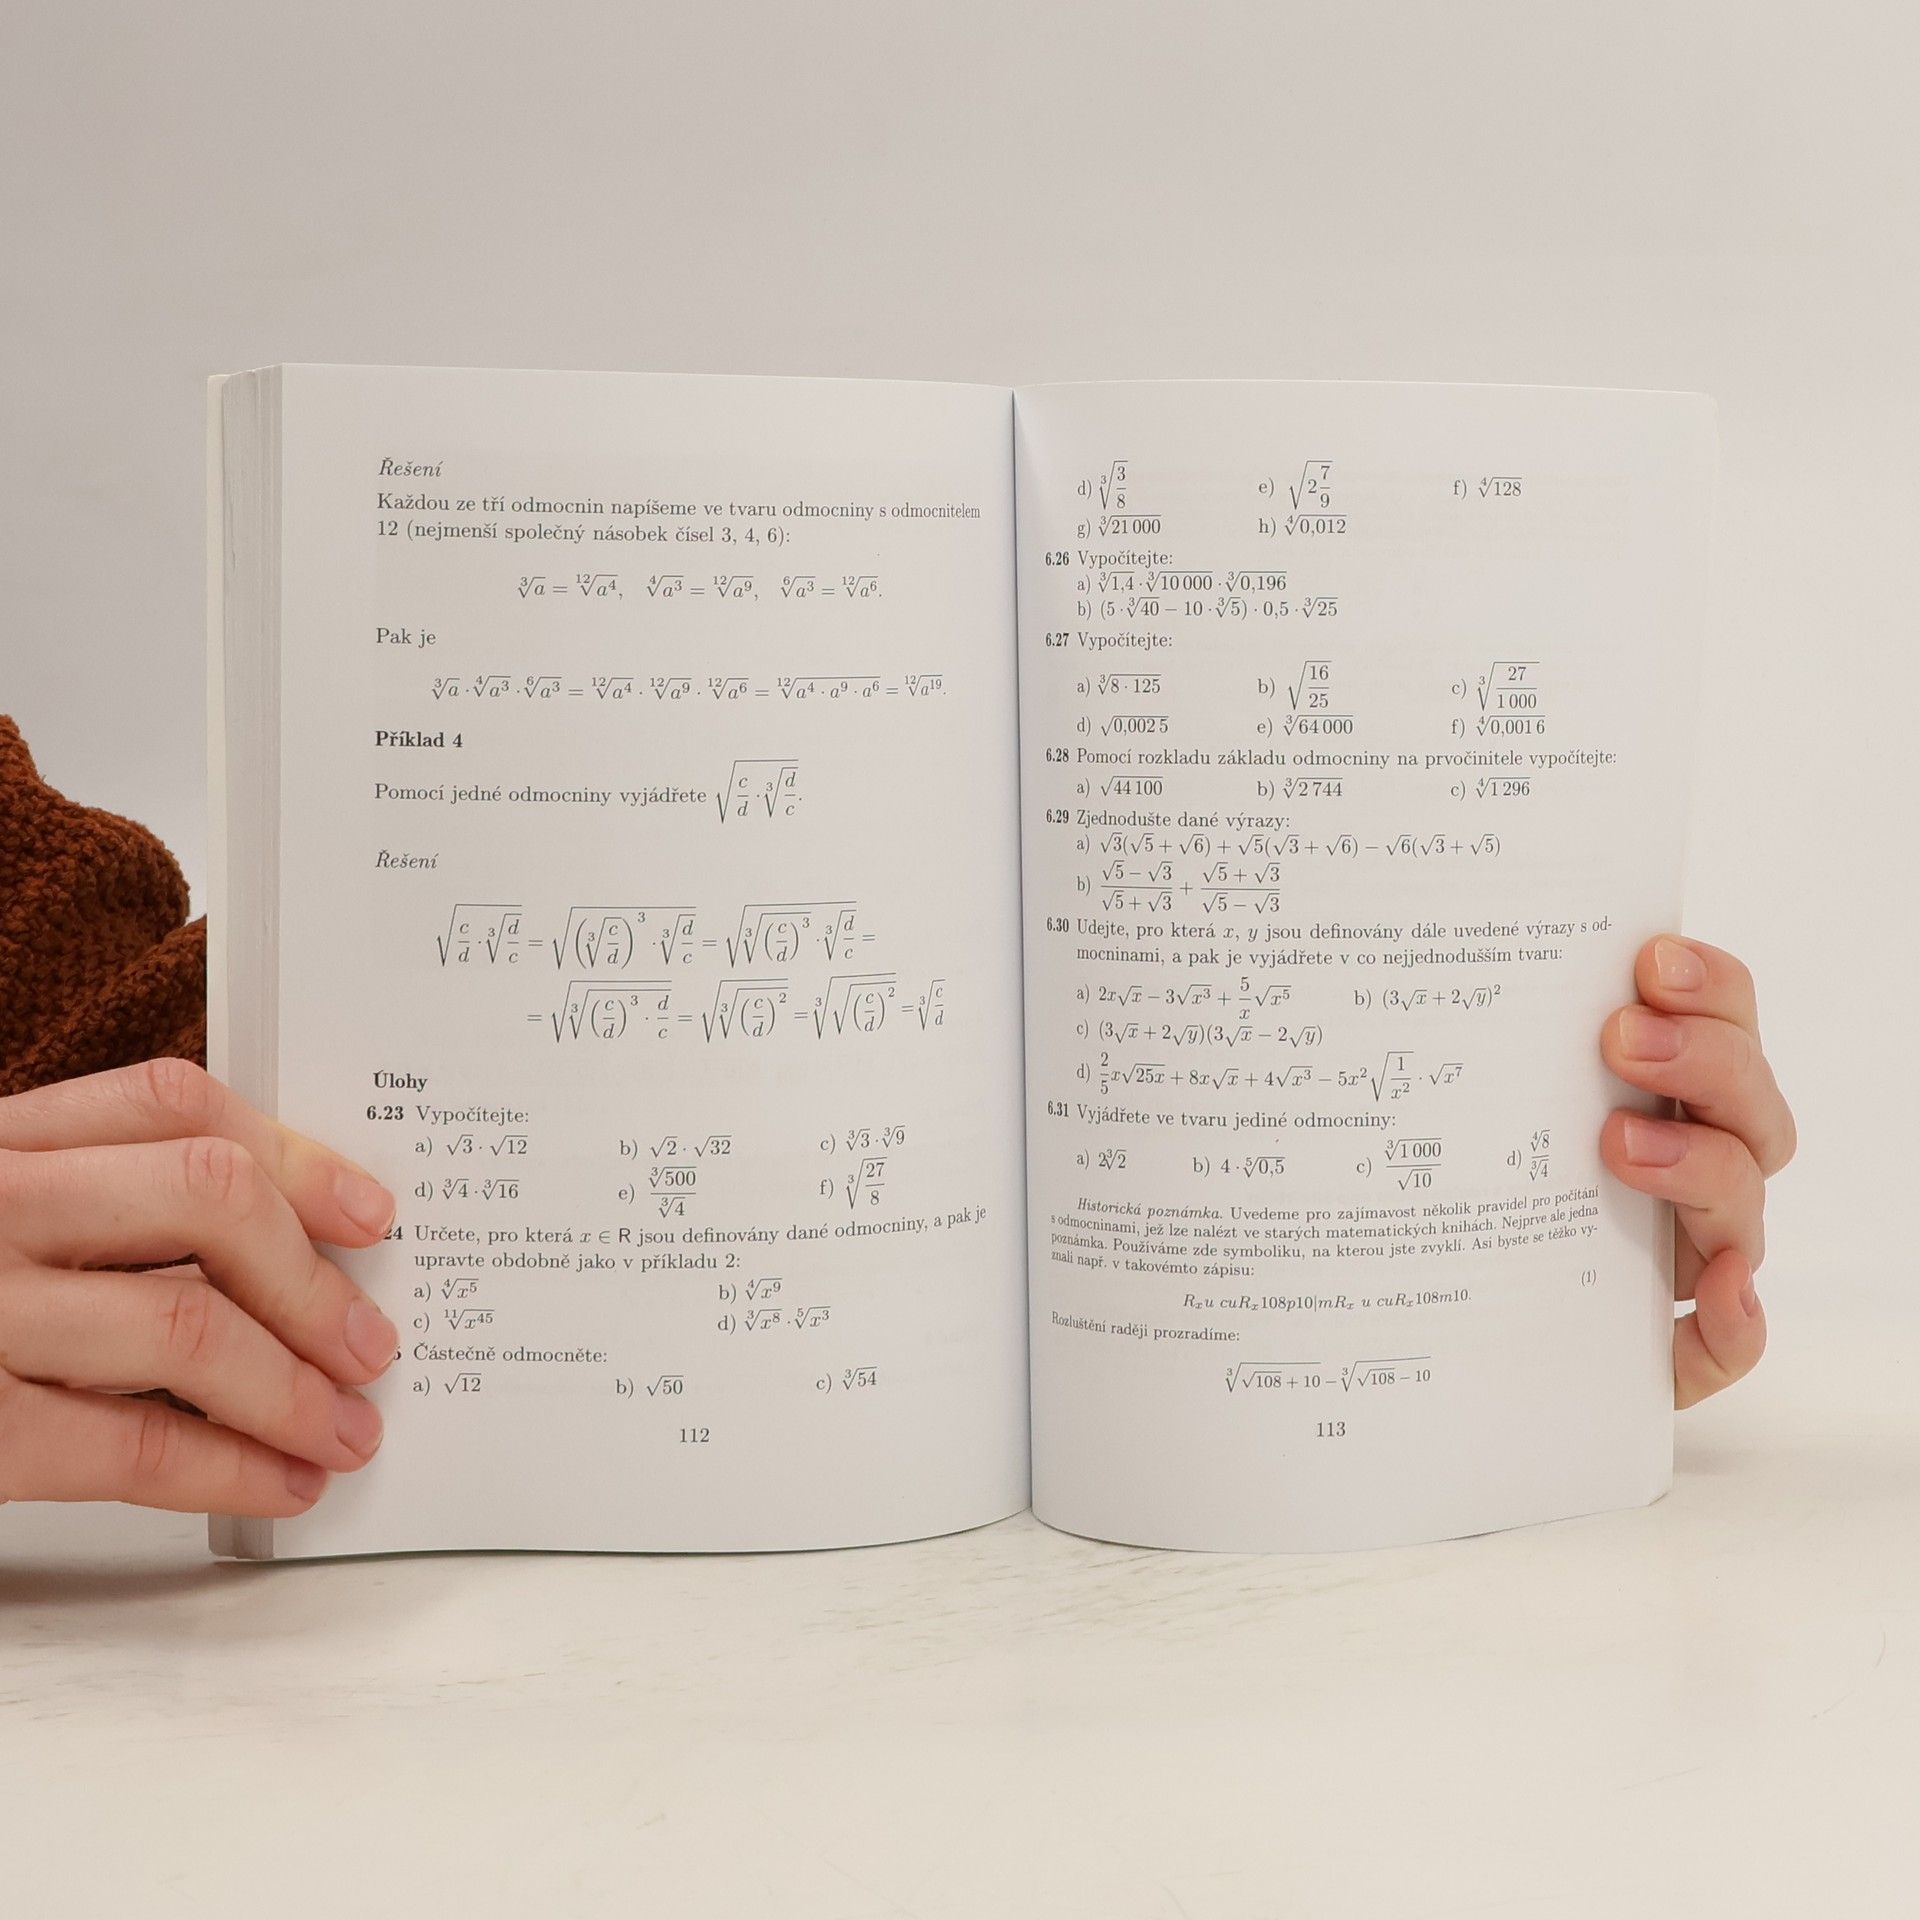 Řešení
Každou ze tří odmocnin napíšeme ve tvaru odmocniny s odmocnitelem
12 (nejmenší společný násobek čísel 3, 4, 6):
∛a = ¹²√(a⁴), ⁴√(a³) = ¹²√(a⁹), ⁶√(a³) = ¹²√(a⁶).
Pak je
∛a · ⁴√(a³) · ⁶√(a³) = ¹²√(a⁴) · ¹²√(a⁹) · ¹²√(a⁶) = ¹²√(a⁴ · a⁹ · a⁶) = ¹²√(a¹⁹).
Příklad 4
Pomocí jedné odmocniny vyjádřete √(c/d · ∛(d/c)).
Řešení
√(c/d · ∛(d/c)) = √((∛(c/d))³ · ∛(d/c)) = √(∛((c/d)³) · ∛(d/c)) =
= √(∛((c/d)³ · d/c)) = √(∛((c/d)²)) = ∛(√((c/d)²)) = ∛(c/d)
Úlohy
6.23 Vypočítejte:
a) √3 · √12 b) √2 · √32 c) ∛3 · ∛9
d) ∛4 · ∛16 e) ∛500/∛4 f) ∛(27/8)
24 Určete, pro která x ∈ R jsou definovány dané odmocniny, a pak je
upravte obdobně jako v příkladu 2:
a) ⁴√(x⁵) b) ⁴√(x⁹)
c) ¹¹√(x⁴⁵) d) ∛(x⁸) · ⁵√(x³)
5 Částečně odmocněte:
a) √12 b) √50 c) ∛54
112
d) ∛(3/8) e) √(2 7/9) f) ⁴√128
g) ∛(21 000) h) ⁴√(0,012)
6.26 Vypočítejte:
a) ∛(1,4) · ∛(10 000) · ∛(0,196)
b) (5 · ∛40 − 10 · ∛5) · 0,5 · ∛25
6.27 Vypočítejte:
a) ∛(8 · 125) b) √(16/25) c) ∛(27/1 000)
d) √(0,002 5) e) ∛(64 000) f) ⁴√(0,001 6)
6.28 Pomocí rozkladu základu odmocniny na prvočinitele vypočítejte:
a) √(44 100) b) ∛(2 744) c) ⁴√(1 296)
6.29 Zjednodušte dané výrazy:
a) √3(√5 + √6) + √5(√3 + √6) − √6(√3 + √5)
b) (√5 − √3)/(√5 + √3) + (√5 + √3)/(√5 − √3)
6.30 Udejte, pro která x, y jsou definovány dále uvedené výrazy s od-
mocninami, a pak je vyjádřete v co nejjednodušším tvaru:
a) 2x√x − 3√(x³) + 5/x √(x⁵) b) (3√x + 2√y)²
c) (3√x + 2√y)(3√x − 2√y)
d) 2/5 x√(25x) + 8x√x + 4√(x³) − 5x²√(1/x²) · √(x⁷)
6.31 Vyjádřete ve tvaru jediné odmocniny:
a) 2∛2 b) 4 · ⁵√(0,5) c) ∛(1 000)/√10 d) ⁴√8/∛4
Historická poznámka. Uvedeme pro zajímavost několik pravidel pro počítání
s odmocninami, jež lze nalézt ve starých matematických knihách. Nejprve ale jedna
poznámka. Používáme zde symboliku, na kterou jste zvyklí. Asi byste se těžko vy-
znali např. v takovémto zápisu:
(1)
Rₓu cuRₓ108p10|mRₓ u cuRₓ108m10.
Rozluštění raději prozradíme:
∛(√108 + 10) − ∛(√108 − 10)
113